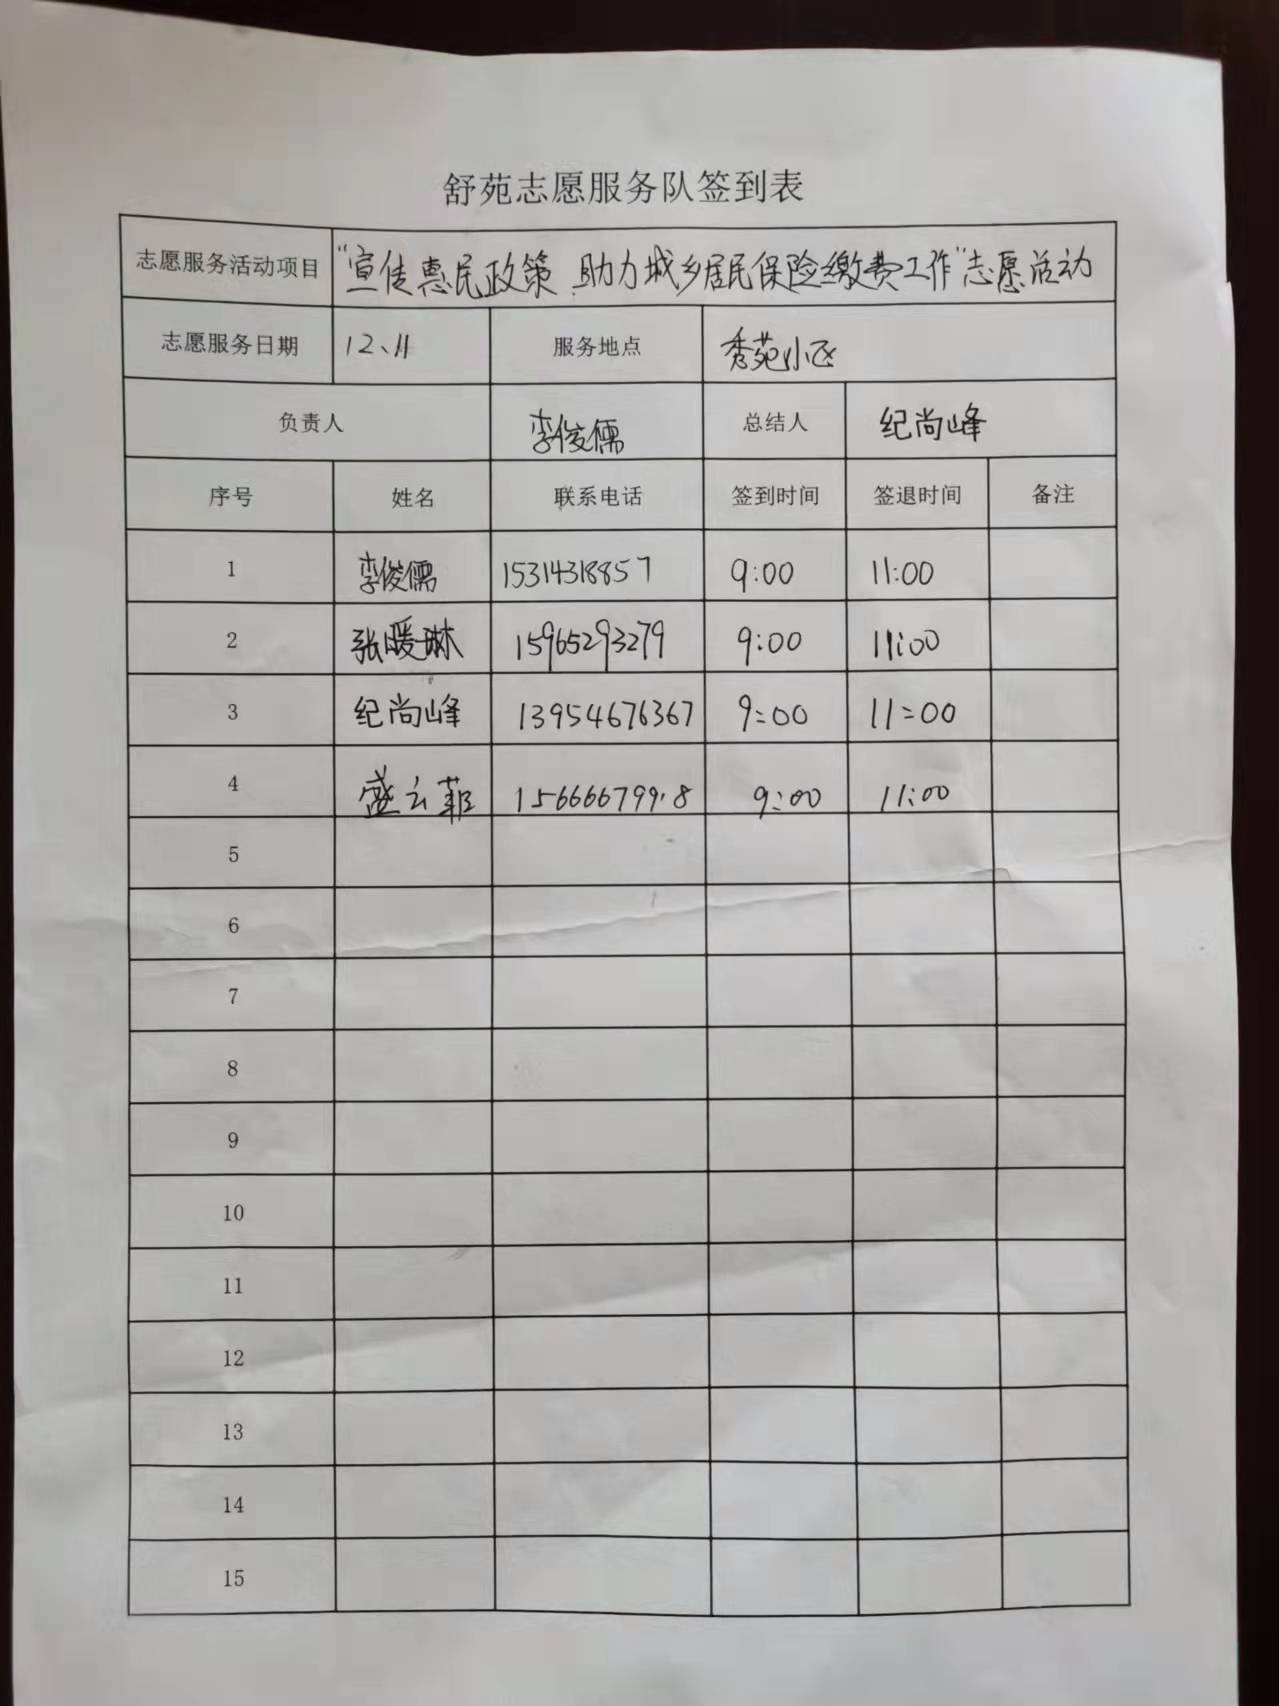 舒苑志愿服务队签到表
志愿服务活动项目 "宣传惠民政策 助力城乡居民保险缴费工作"志愿活动
志愿服务日期 12、11 服务地点 秀苑小区
负责人 李俊儒 总结人 纪尚峰
序号 姓名 联系电话 签到时间 签退时间 备注
1 李俊儒 15314318857 9:00 11:00
2 张暖琳 15965293279 9:00 11:00
3 纪尚峰 13954676367 9:00 11:00
4 盛云菲 9:00 11:00
5
6
7
8
9
10
11
12
13
14
15